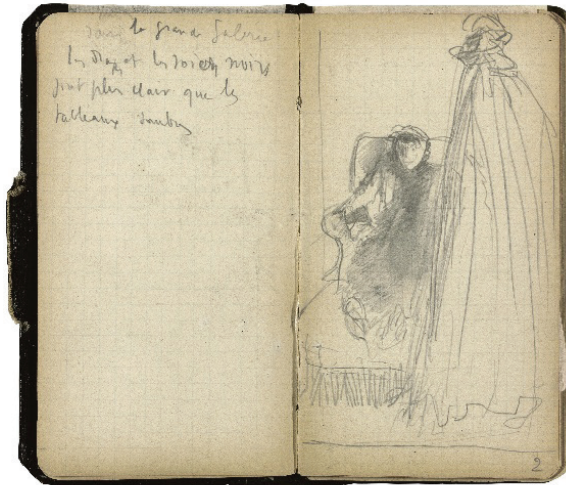 dans la grande Galerie
les draps et les soies noirs
sont plus clair que les
tableaux sombres
2